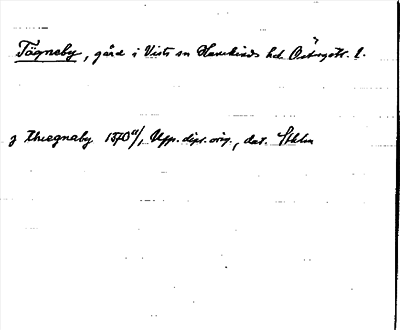 Tägneby, gård i Vists sn Hanekinds hd Östergötl. l.
j thiegnaby 1370 Upp. dipl. orig., dat. Sthlm